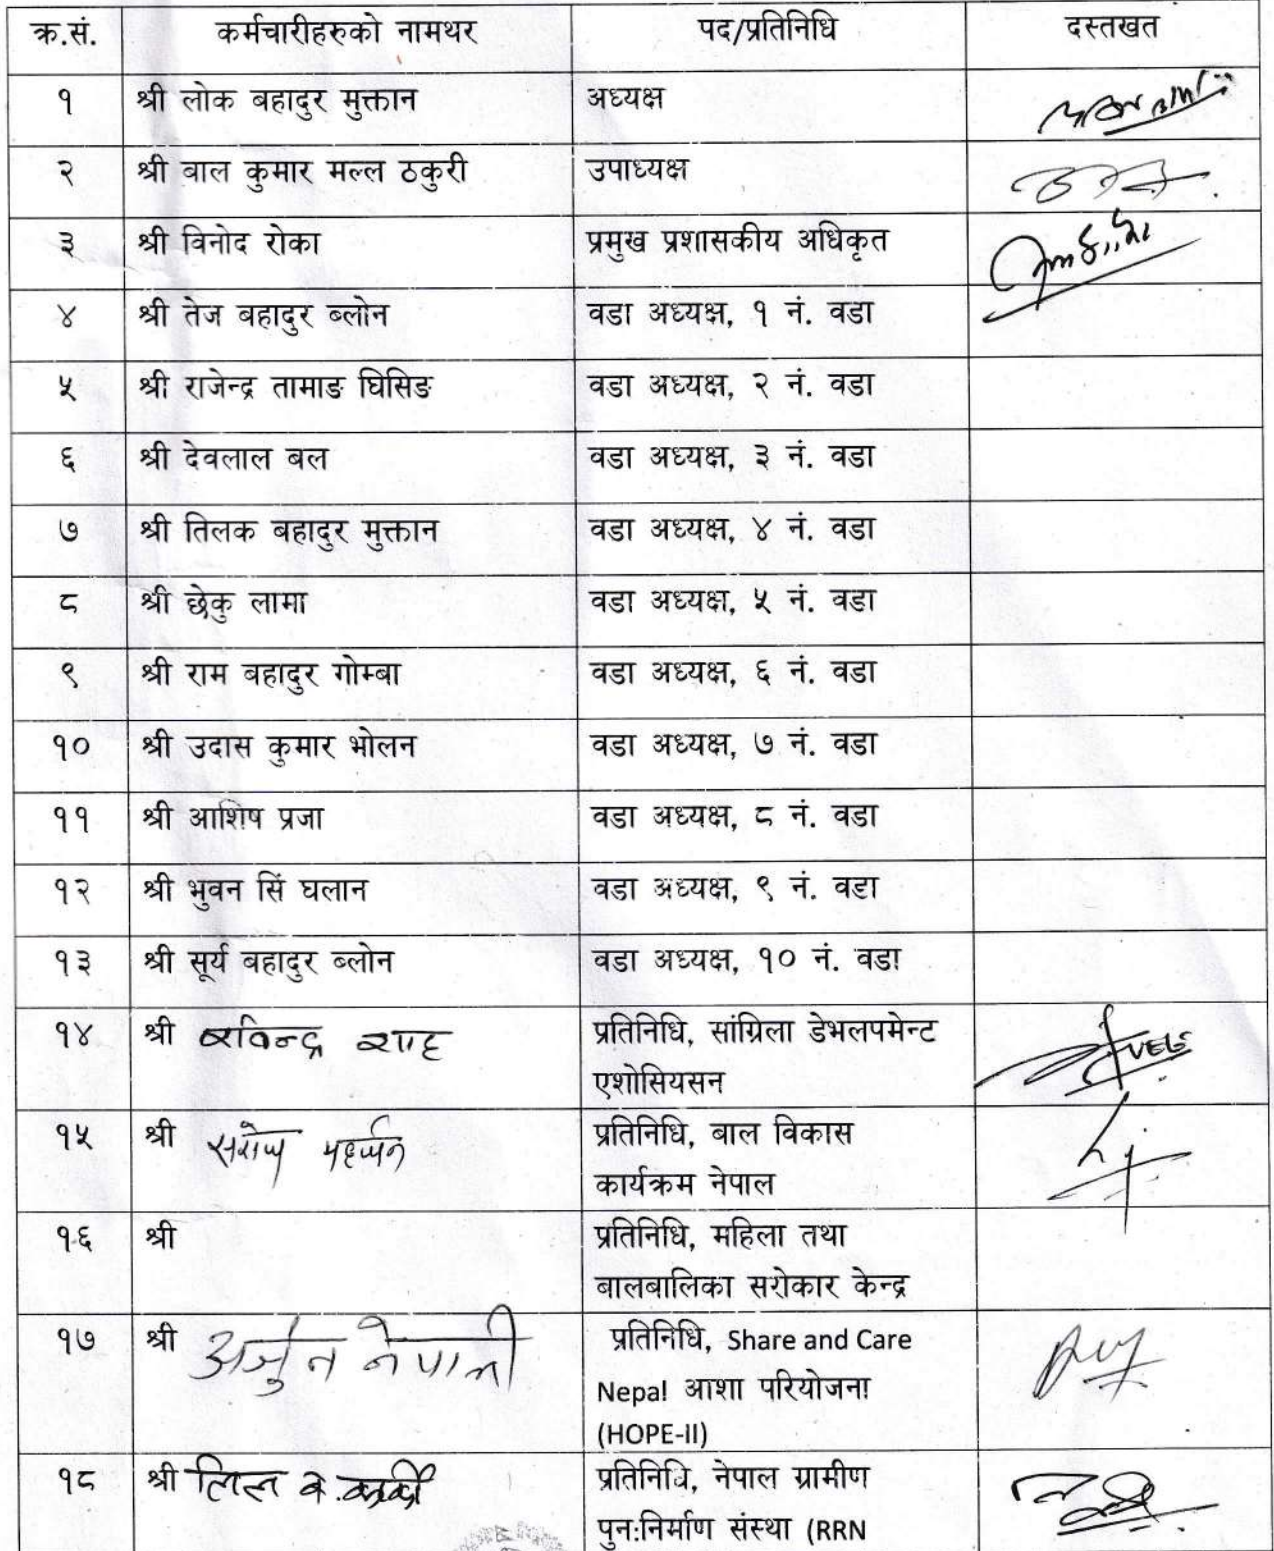 क्र.सं. कर्मचारीहरुको नामथर पद/प्रतिनिधि दस्तखत
१ श्री लोक बहादुर मुक्तान अध्यक्ष
२ श्री बाल कुमार मल्ल ठकुरी उपाध्यक्ष
३ श्री विनोद रोका प्रमुख प्रशासकीय अधिकृत
४ श्री तेज बहादुर ब्लोन वडा अध्यक्ष, १ नं. वडा
५ श्री राजेन्द्र तामाङ घिसिङ वडा अध्यक्ष, २ नं. वडा
६ श्री देवलाल बल वडा अध्यक्ष, ३ नं. वडा
७ श्री तिलक बहादुर मुक्तान वडा अध्यक्ष, ४ नं. वडा
८ श्री छेकु लामा वडा अध्यक्ष, ५ नं. वडा
९ श्री राम बहादुर गोम्बा वडा अध्यक्ष, ६ नं. वडा
१० श्री उदास कुमार भोलन वडा अध्यक्ष, ७ नं. वडा
११ श्री आशिष प्रजा वडा अध्यक्ष, ८ नं. वडा
१२ श्री भुवन सिं घलान वडा अध्यक्ष, ९ नं. वडा
१३ श्री सूर्य बहादुर ब्लोन वडा अध्यक्ष, १० नं. वडा
१४ श्री रविन्द्र शाह प्रतिनिधि, सांग्रिला डेभलपमेन्ट
एशोसियसन
१५ श्री सरोज महर्जन प्रतिनिधि, बाल विकास
कार्यक्रम नेपाल
१६ श्री प्रतिनिधि, महिला तथा
बालबालिका सरोकार केन्द्र
१७ श्री अर्जुन नेपाली प्रतिनिधि, Share and Care
Nepal आशा परियोजना
(HOPE-II)
१८ श्री तिल ब. कार्की प्रतिनिधि, नेपाल ग्रामीण
पुन:निर्माण संस्था (RRN